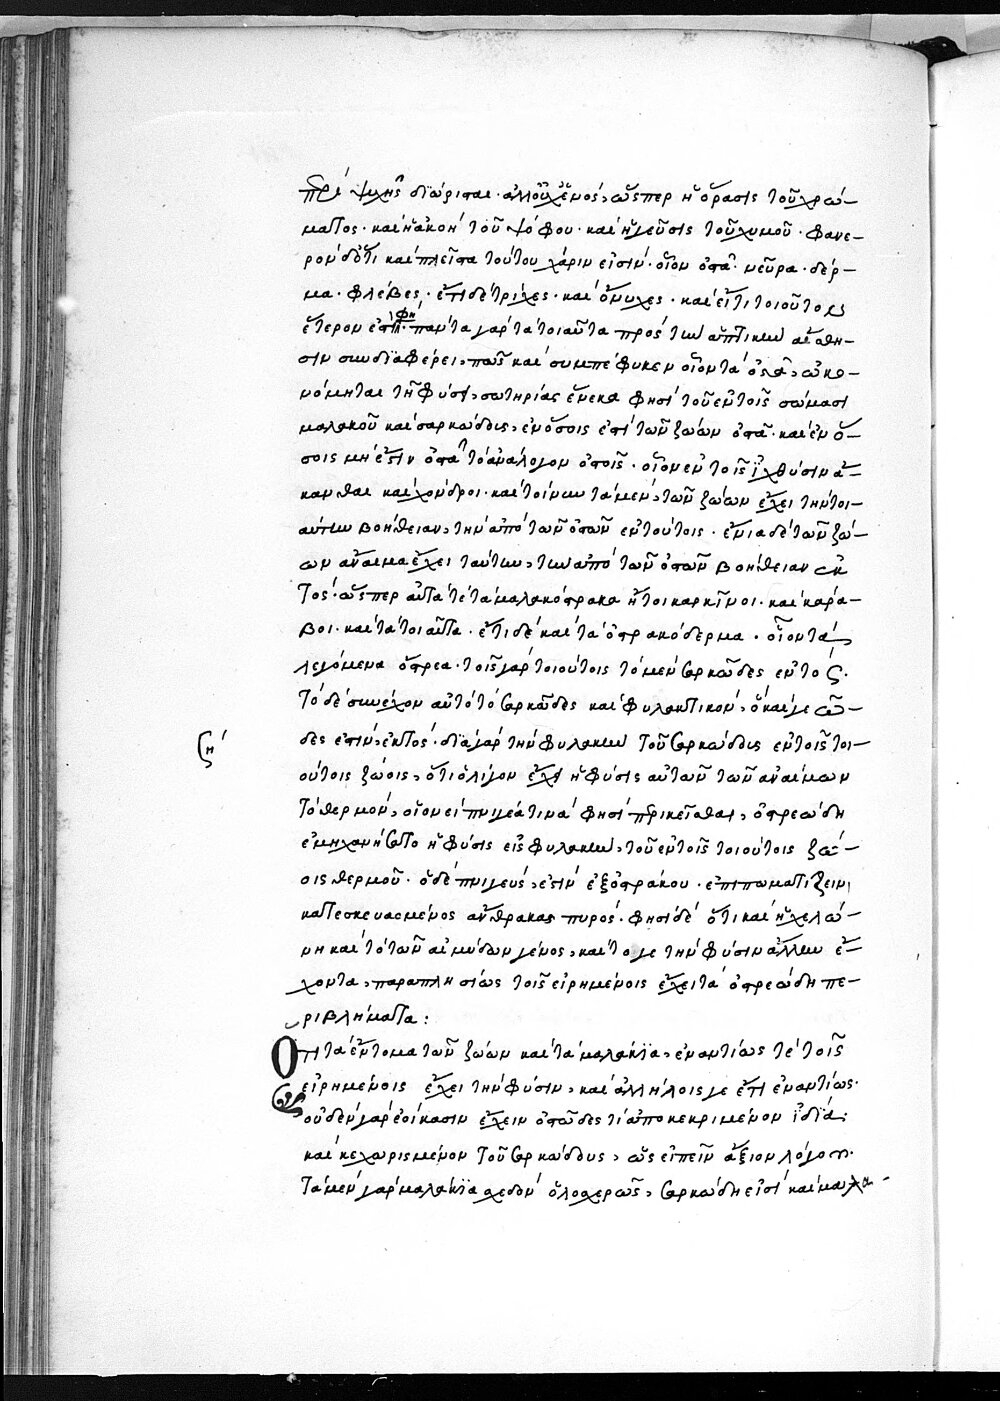 περὶ ψυχῆς διώρισται· ἀλλ' οὐχ ἑνός, ὥσπερ ἡ ὅρασις τοῦ χρώ-
ματος· καὶ ἡ ἀκοὴ τοῦ ψόφου· καὶ ἡ γεῦσις τοῦ χυμοῦ· φανε-
ρὸν δ' ὅτι καὶ πλεῖστα τούτου χάριν εἰσίν· οἷον ὀστᾶ· νεῦρα· δέρ-
μα· φλέβες· ἔτι δὲ τρίχες· καὶ ὄνυχες· καὶ εἴ τι τοιοῦτον
ἕτερόν ἐστι φη· πάντα γὰρ τὰ τοιαῦτα πρὸς τὴν ἁπτικὴν αἴσθη-
σιν συνδιαφέρει, πῶς καὶ συμπέφυκεν οἷον τὰ ὀστᾶ, ᾠκο-
νόμηται τῇ φύσει, σωτηρίας ἕνεκα φησὶ τοῦ ἐν τοῖς σώμασι
μαλακοῦ καὶ σαρκώδους, ἐν ὅσοις ἐπὶ τῶν ζώων ὀστᾶ· καὶ ἐν ὅ-
σοις μὴ ἔστιν ὀστᾶ τὸ ἀνάλογον ὀστοῖς· οἷον ἐν τοῖς ἰχθύσιν ἄ-
κανθαι καὶ χόνδροι· καὶ τοίνυν τὰ μὲν, τῶν ζώων ἔχει τὴν τοι-
αύτην βοήθειαν, τὴν ἀπὸ τῶν ὀστῶν ἐν τούτοις· ἔνια δὲ τῶν ζώ-
ων ἄναιμα ἔχει ταύτην, τὴν ἀπὸ τῶν ὀστῶν βοήθειαν ἐκ
τός· ὥσπερ αὐτά τε τὰ μαλακόστρακα ἤτοι καρκῖνοι· καὶ κάρα-
βοι· καὶ τὰ τοιαῦτα· ἔτι δὲ καὶ τὰ ὀστρακόδερμα· οἷον τὰ
λεγόμενα ὄστρεα· τοῖς γὰρ τοιούτοις τὸ μὲν σαρκῶδες ἐντός·
τὸ δὲ συνέχον αὐτὸ τὸ σαρκῶδες καὶ φυλακτικόν, ὃ καὶ γεῶ-
δες ἐστίν, ἐκτός· διὰ γὰρ τὴν φυλακὴν τοῦ σαρκώδους ἐν τοῖς τοι-
ούτοις ζώοις, ὅτι ὀλίγον ἔχει ἡ φύσις αὐτῶν τῶν ἀναίμων
τὸ θερμόν, οἷον εἰ πνιγέα τινά φησὶ περικεῖσθαι, ὀστρεώδη
ἐμηχανήσατο ἡ φύσις εἰς φυλακὴν, τοῦ ἐν τοῖς τοιούτοις ζώ-
οις θερμοῦ· ὁ δὲ πνιγεύς, ἐστὶν ἐξ ὀστράκου· ἐπιπωματίζειν
κατεσκευασμένος ἄνθρακας πυρός· φησὶ δὲ ὅτι καὶ ἡ χελώ-
νη καὶ τὸ τῶν αἰμύδων γένος, καὶ το γε τὴν φύσιν ἄλλην ἔ-
χοντα, παραπλησίως τοῖς εἰρημένοις ἔχει τὰ ὀστρεώδη πε-
ριβλήματα:
Ὅτι τὰ ἔντομα τῶν ζώων καὶ τὰ μαλάκια, ἐναντίως τε τοῖς
εἰρημένοις ἔχει τὴν φύσιν, καὶ ἀλλήλοις γε ἔτι ἐναντίως·
οὐδὲν γὰρ ἐοίκασιν ἔχειν ὀστῶδές τι ἀποκεκριμένον ἰδίᾳ·
καὶ κεχωρισμένον τοῦ σαρκώδους, ὡς εἰπεῖν ἄξιον λόγου·
Τὰ μὲν γὰρ μαλάκια σχεδὸν ὁλοσχερῶς, σαρκώδη εἰσὶ καὶ μαλα-
ζη΄